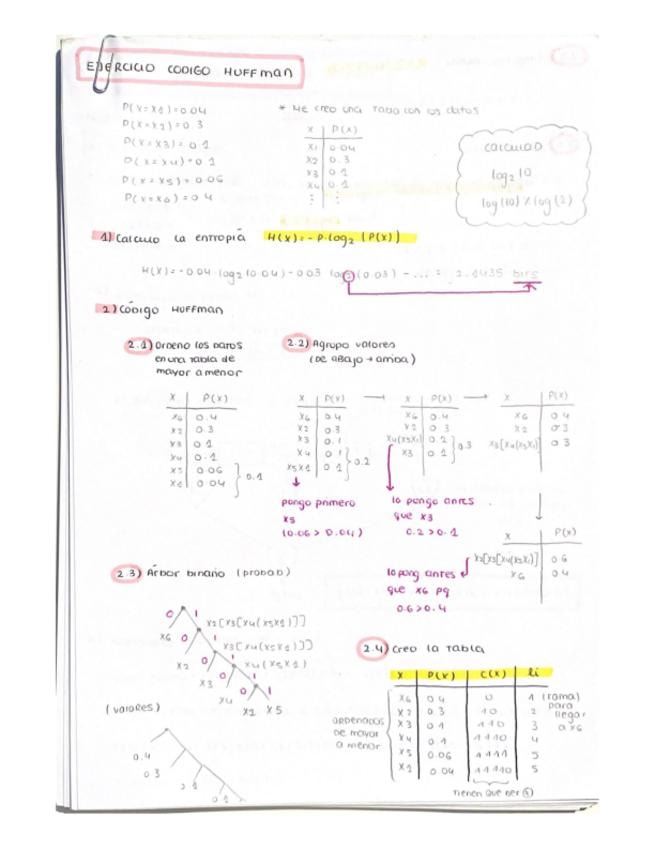 EJERCICIO CODIGO HUFFman
P(X=X1)=0.04
P(X=X2)=0.3
P(X=X3)=0.1
P(X=X4)=0.1
P(X=X5)=0.06
P(X=X6)=0.4
* Me creo una tabla con los datos
X P(X)
X1 0.04
X2 0.3
X3 0.1
X4 0.1
⋮ ⋮
calculaD
log2 10
log(10) / log(2)
1) Calculo la entropía H(X)=-P·log2 (P(X))
H(X)=-0.04·log2(0.04)-0.03 log2(0.03)-...= 2.0435 bits
2) Código HUFFMAN
2.1) Ordeno los datos
en una tabla de
mayor a menor
X P(X)
X6 0.4
X2 0.3
X3 0.1
X4 0.1
X5 0.06
X1 0.04
0.1
2.2) Agrupo valores
(DE ABAJO → arriba)
X P(X)
X6 0.4
X2 0.3
X3 0.1
X4 0.1
X5X1 0.1
0.2
pongo primero
X5
(0.06 > 0.04)
X P(X)
X6 0.4
X2 0.3
X4(X5X1) 0.2
X3 0.1
0.3
lo pongo antes
que X3
0.2>0.1
X P(X)
X6 0.4
X2 0.3
X3[X4(X5X1)] 0.3
X P(X)
X2[X3[X4(X5X1)]] 0.6
X6 0.4
lo pong antes
que X6 pq
0.6>0.4
2.3) Árbol binario (probab)
0 1
X6 0 1 X2[X3[X4(X5X1)]]
X2 0 1 X3[X4(X5X1)]]
X3 0 1 X4(X5X1)
X4 0 1
X1 X5
(valores)
0.4
0.3
0.1
0.1
2.4) Creo la tabla
X P(X) C(X) li
X6 0.4 0 1 (rama)
X2 0.3 10 2
X3 0.1 110 3
X4 0.1 1110 4
X5 0.06 11111 5
X1 0.04 11110 5
para
llegar
a X6
ORDENADOS
DE mayor
a menor
tienen que ser